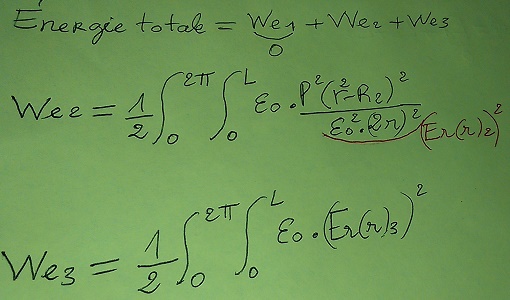 Énergie totale = We1 + We2 + We3
0
We2 = 1/2 ∫0^2π ∫0^L ε0 . P²(r²-R2)² / ε0².(2r)² (Er(r)2)²
We3 = 1/2 ∫0^2π ∫0^L ε0 . (Er(r)3)²